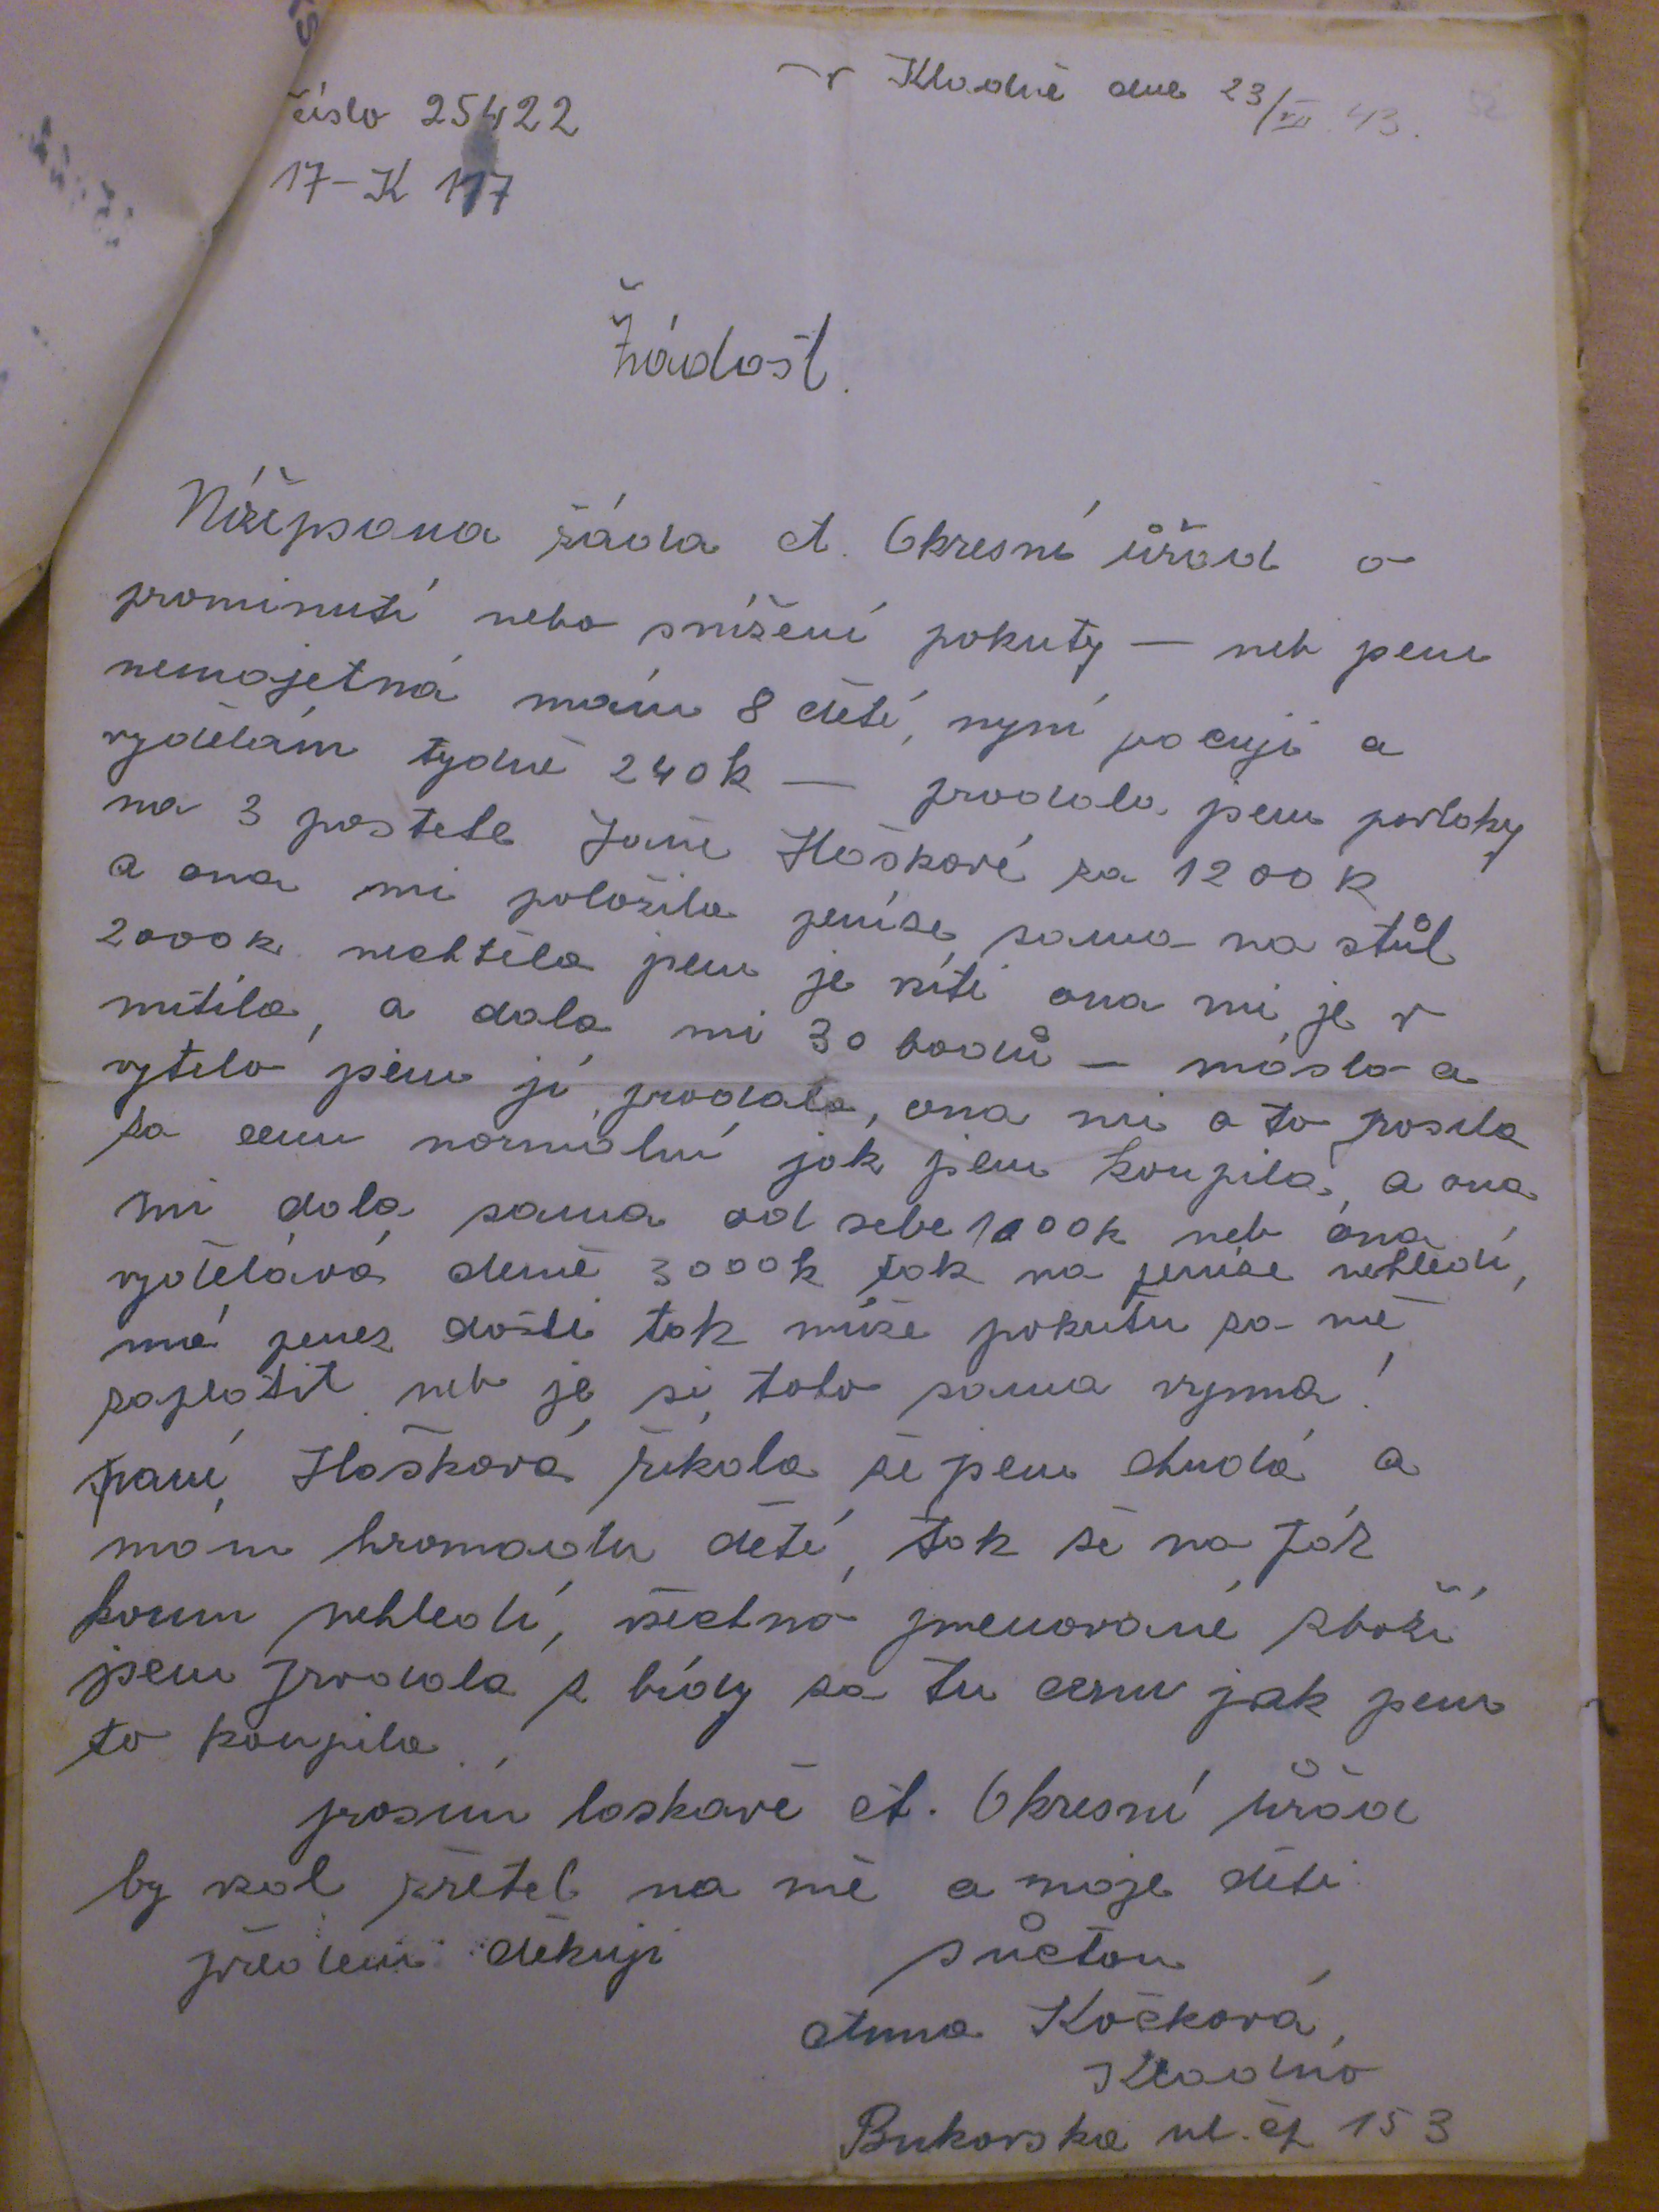 v Kladně dne 23/VII. 43.
číslo 25422
17-K 117
Žádost.
Nížepsana žáda ct. Okresní úřad o
prominutí nebo snížení pokuty — neb jsem
nemajetná mám 8 dětí, nyní pacuji a
vydělám tydně 240k — prodala jsem povlaky
na 3 postele Janě Haškové za 1200k
a ona mi položila peníze sama na stůl
2000k nechtěla jsem je víti ona mi je v
nutila, a dala mi 30 bodů — máslo a
vytelo jsem jí prodala, ona mi o to prosila
za cenu normalní jak jsem koupila, a ona
mi dala sama od sebe 1000k neb ona
vydělává deně 3000k tak na peníze nehledí,
má penez dosti tak může pokutu za mě
zaplatit neb je si toto sama vynna!
paní Hašková řikala že jsem chudá a
mám hromadu dětí, tak se na pár
korun nehledí, všechno jmenované zboží
jsem prodala z bídy za tu cenu jak jsem
to koupila.
prosím laskavě ct. Okresní úřad
by vzal zřetel na mě a moje děti
předem děkuji
s úctou
Anna Kočková,
Kladno
Bukovska ul. čp 153